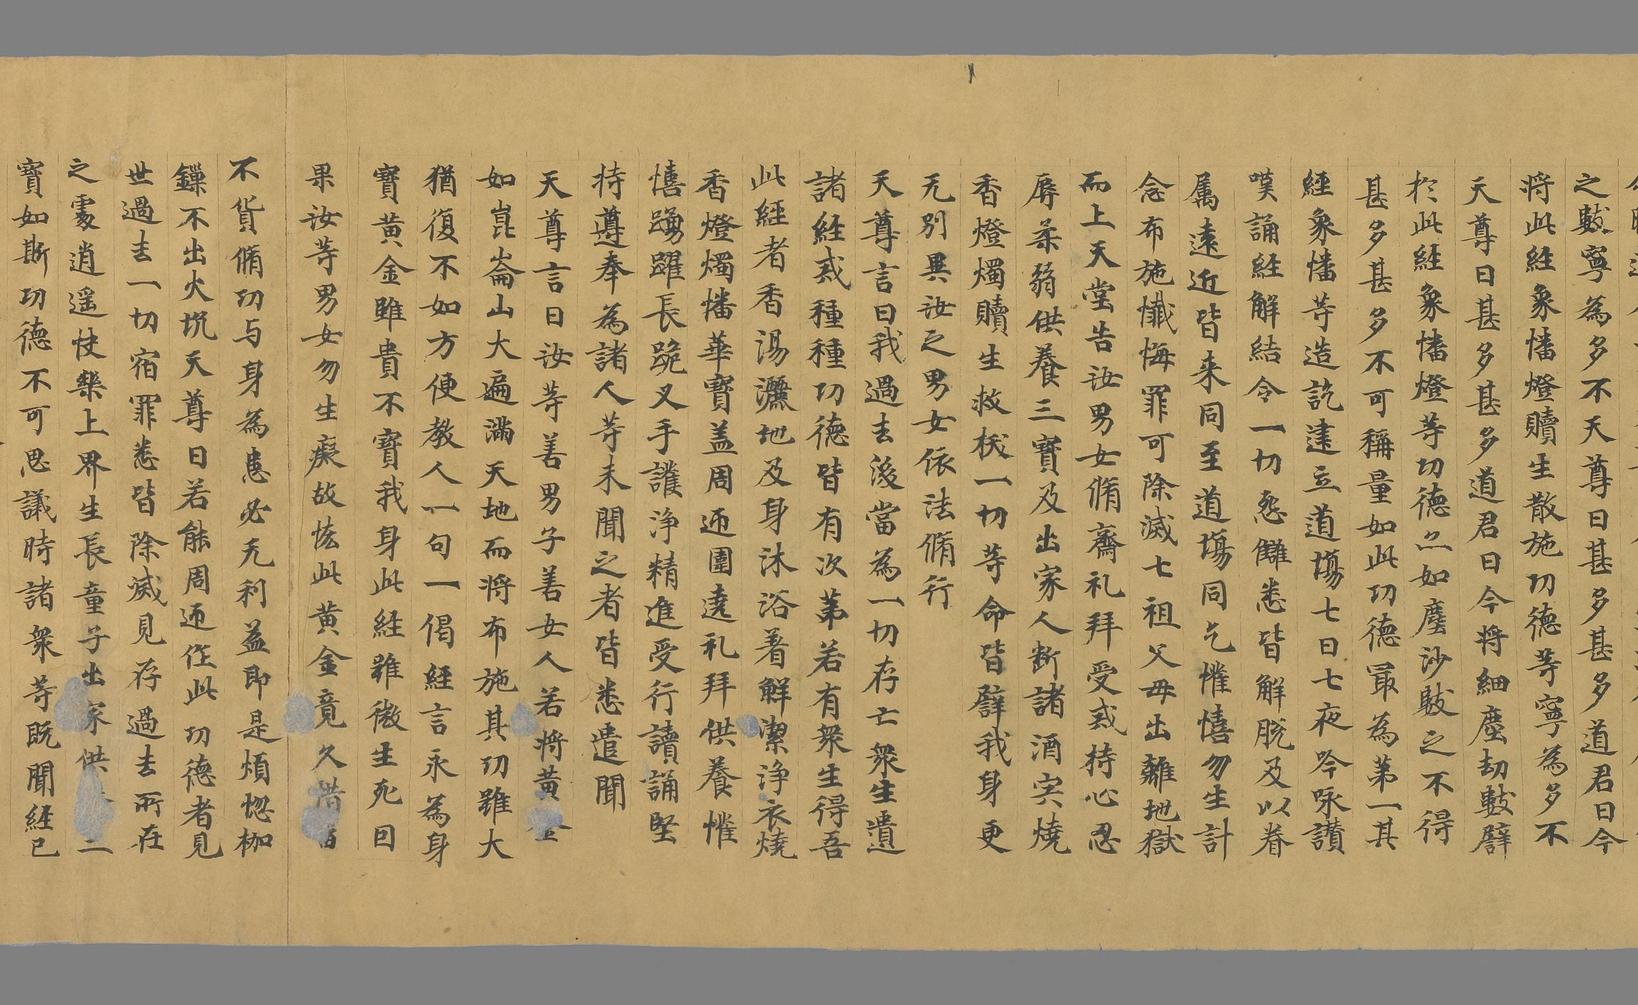 之數寧為多不天尊曰甚多甚多道君曰今
将此經象幡燈贖生散施功德等寧為多不
天尊曰甚多甚多道君曰今将細塵劫數譬
於此經象幡燈等功德亦如塵沙數之不得
甚多甚多不可稱量如此功德冣為苐一其
經象幡等造訖建立道場七日七夜吟咏讚
嘆誦經解結令一切怨讎悉皆解脫及以眷
属遠近皆来同至道場同乞懽憘勿生計
念布施懺悔罪可除滅七祖父母出離地獄
而上天堂告汝男女脩齋礼拜受戒持心忍
辱柔弱供養三寶及出家人断諸酒宍燒
香燈燭贖生救扶一切等命皆譬我身更
无別異汝之男女依法脩行
天尊言曰我過去後當為一切存亡衆生遺
諸經戒種種功德皆有次苐若有衆生得吾
此經者香湯灑地及身沐浴著鮮潔淨衣燒
香燈燭幡華寶盖周迊圍遶礼拜供養懽
憘踴躍長跪叉手護淨精進受行讀誦堅
持遵奉為諸人等未聞之者皆悉遣聞
天尊言曰汝等善男子善女人若将黄金
如崑崙山大遍滿天地而将布施其功雖大
猶復不如方便教人一句一偈經言永為身
寶黄金雖貴不寶我身此經雖微生死回
果汝等男女勿生癡故恡此黄金竟久惜
不貨脩功与身為患必无利益即是煩惚枷
鏁不出火坑天尊曰若能周迊作此功德者見
世過去一切宿罪悉皆除滅見存過去所在
之處逍遥快樂上界生長童子出家供二
寶如斯功德不可思議時諸衆等既聞經已